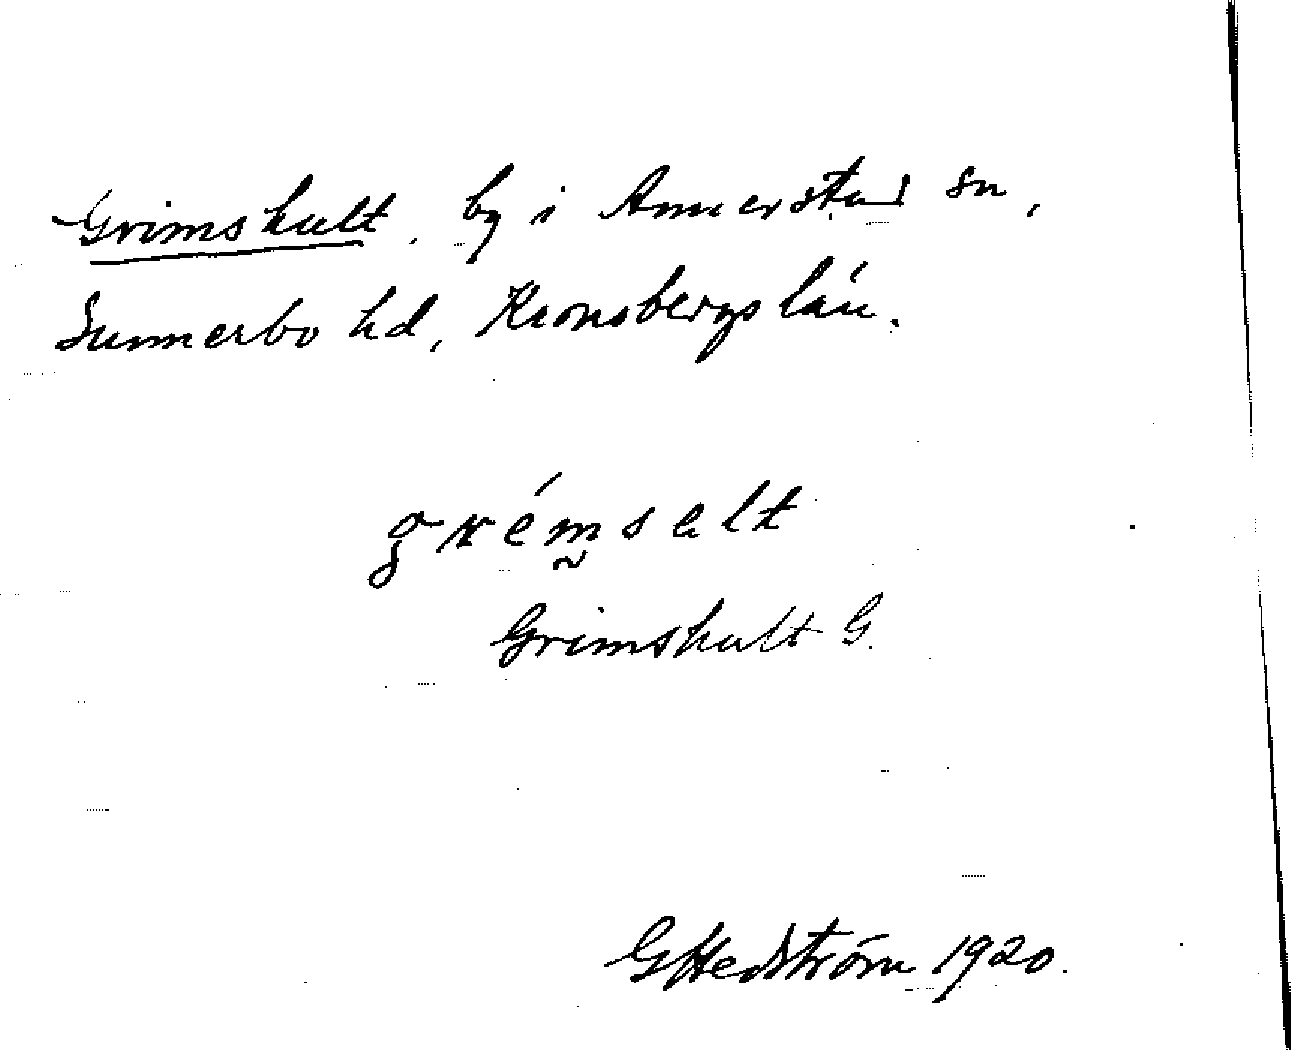 Grimshult, by i Annerstad sn,
Sunnerbo hd, Kronobergs län.
grém̰salt
Grimshult G.
G Hedström 1920.